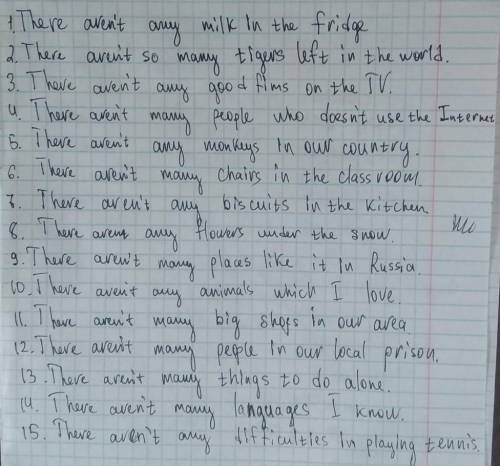 1. There aren't any milk in the fridge
2. There aren't so many tigers left in the world.
3. There aren't any good fims on the TV.
4. There aren't many people who doesn't use the Internet
5. There aren't any monkeys in our country.
6. There aren't many chairs in the classroom.
7. There aren't any biscuits in the kitchen.
8. There arent any flowers under the snow.
9. There aren't many places like it in Russia.
10. There aren't any animals which I love.
11. There aren't many big shops in our area
12. There aren't many people in our local prison.
13. There aren't many things to do alone.
14. There aren't many languages I know.
15. There aren't any difficulties in playing tennis.